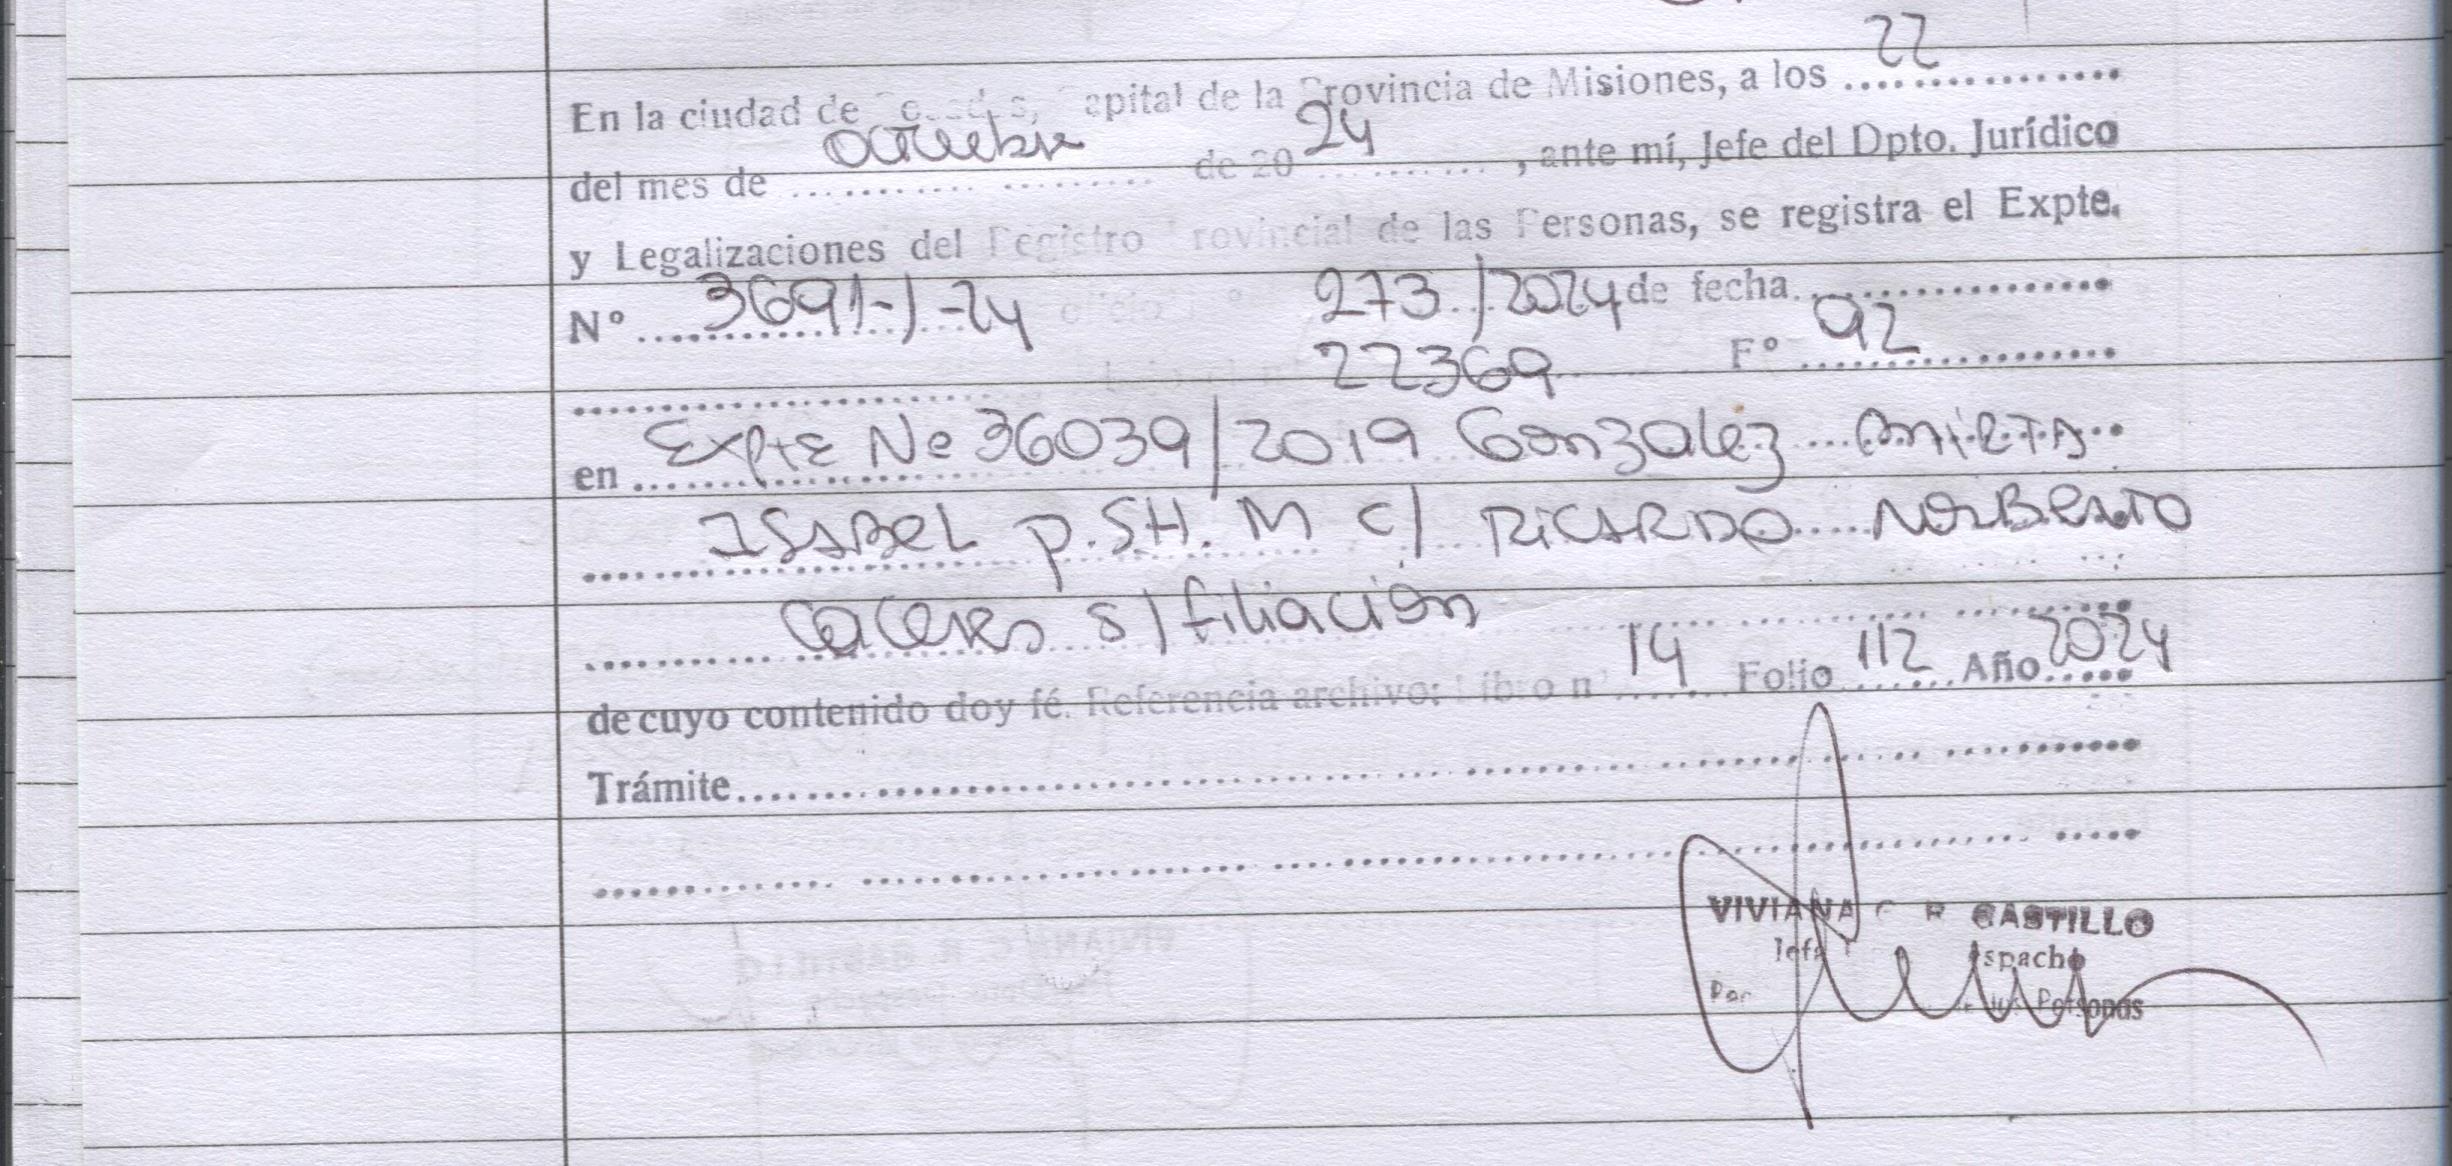 En la ciudad de Posadas, Capital de la Provincia de Misiones, a los 22
del mes de octubre de 2024, ante mí, Jefe del Dpto. Jurídico
y Legalizaciones del Registro Provincial de las Personas, se registra el Expte.
Nº 3691-J-24 oficio nº 273/2024 de fecha
22369 Fº 92
en Expte Nº 36039/2019 Gonzalez MIRTA
ISABEL p.SH.M c/ RICARDO NORBERTO
Caceres s/filiación
de cuyo contenido doy fé. Referencia archivo: Libro nº 14 Folio 112 Año 2024
Trámite
VIVIANA C. R. CASTILLO
Personas